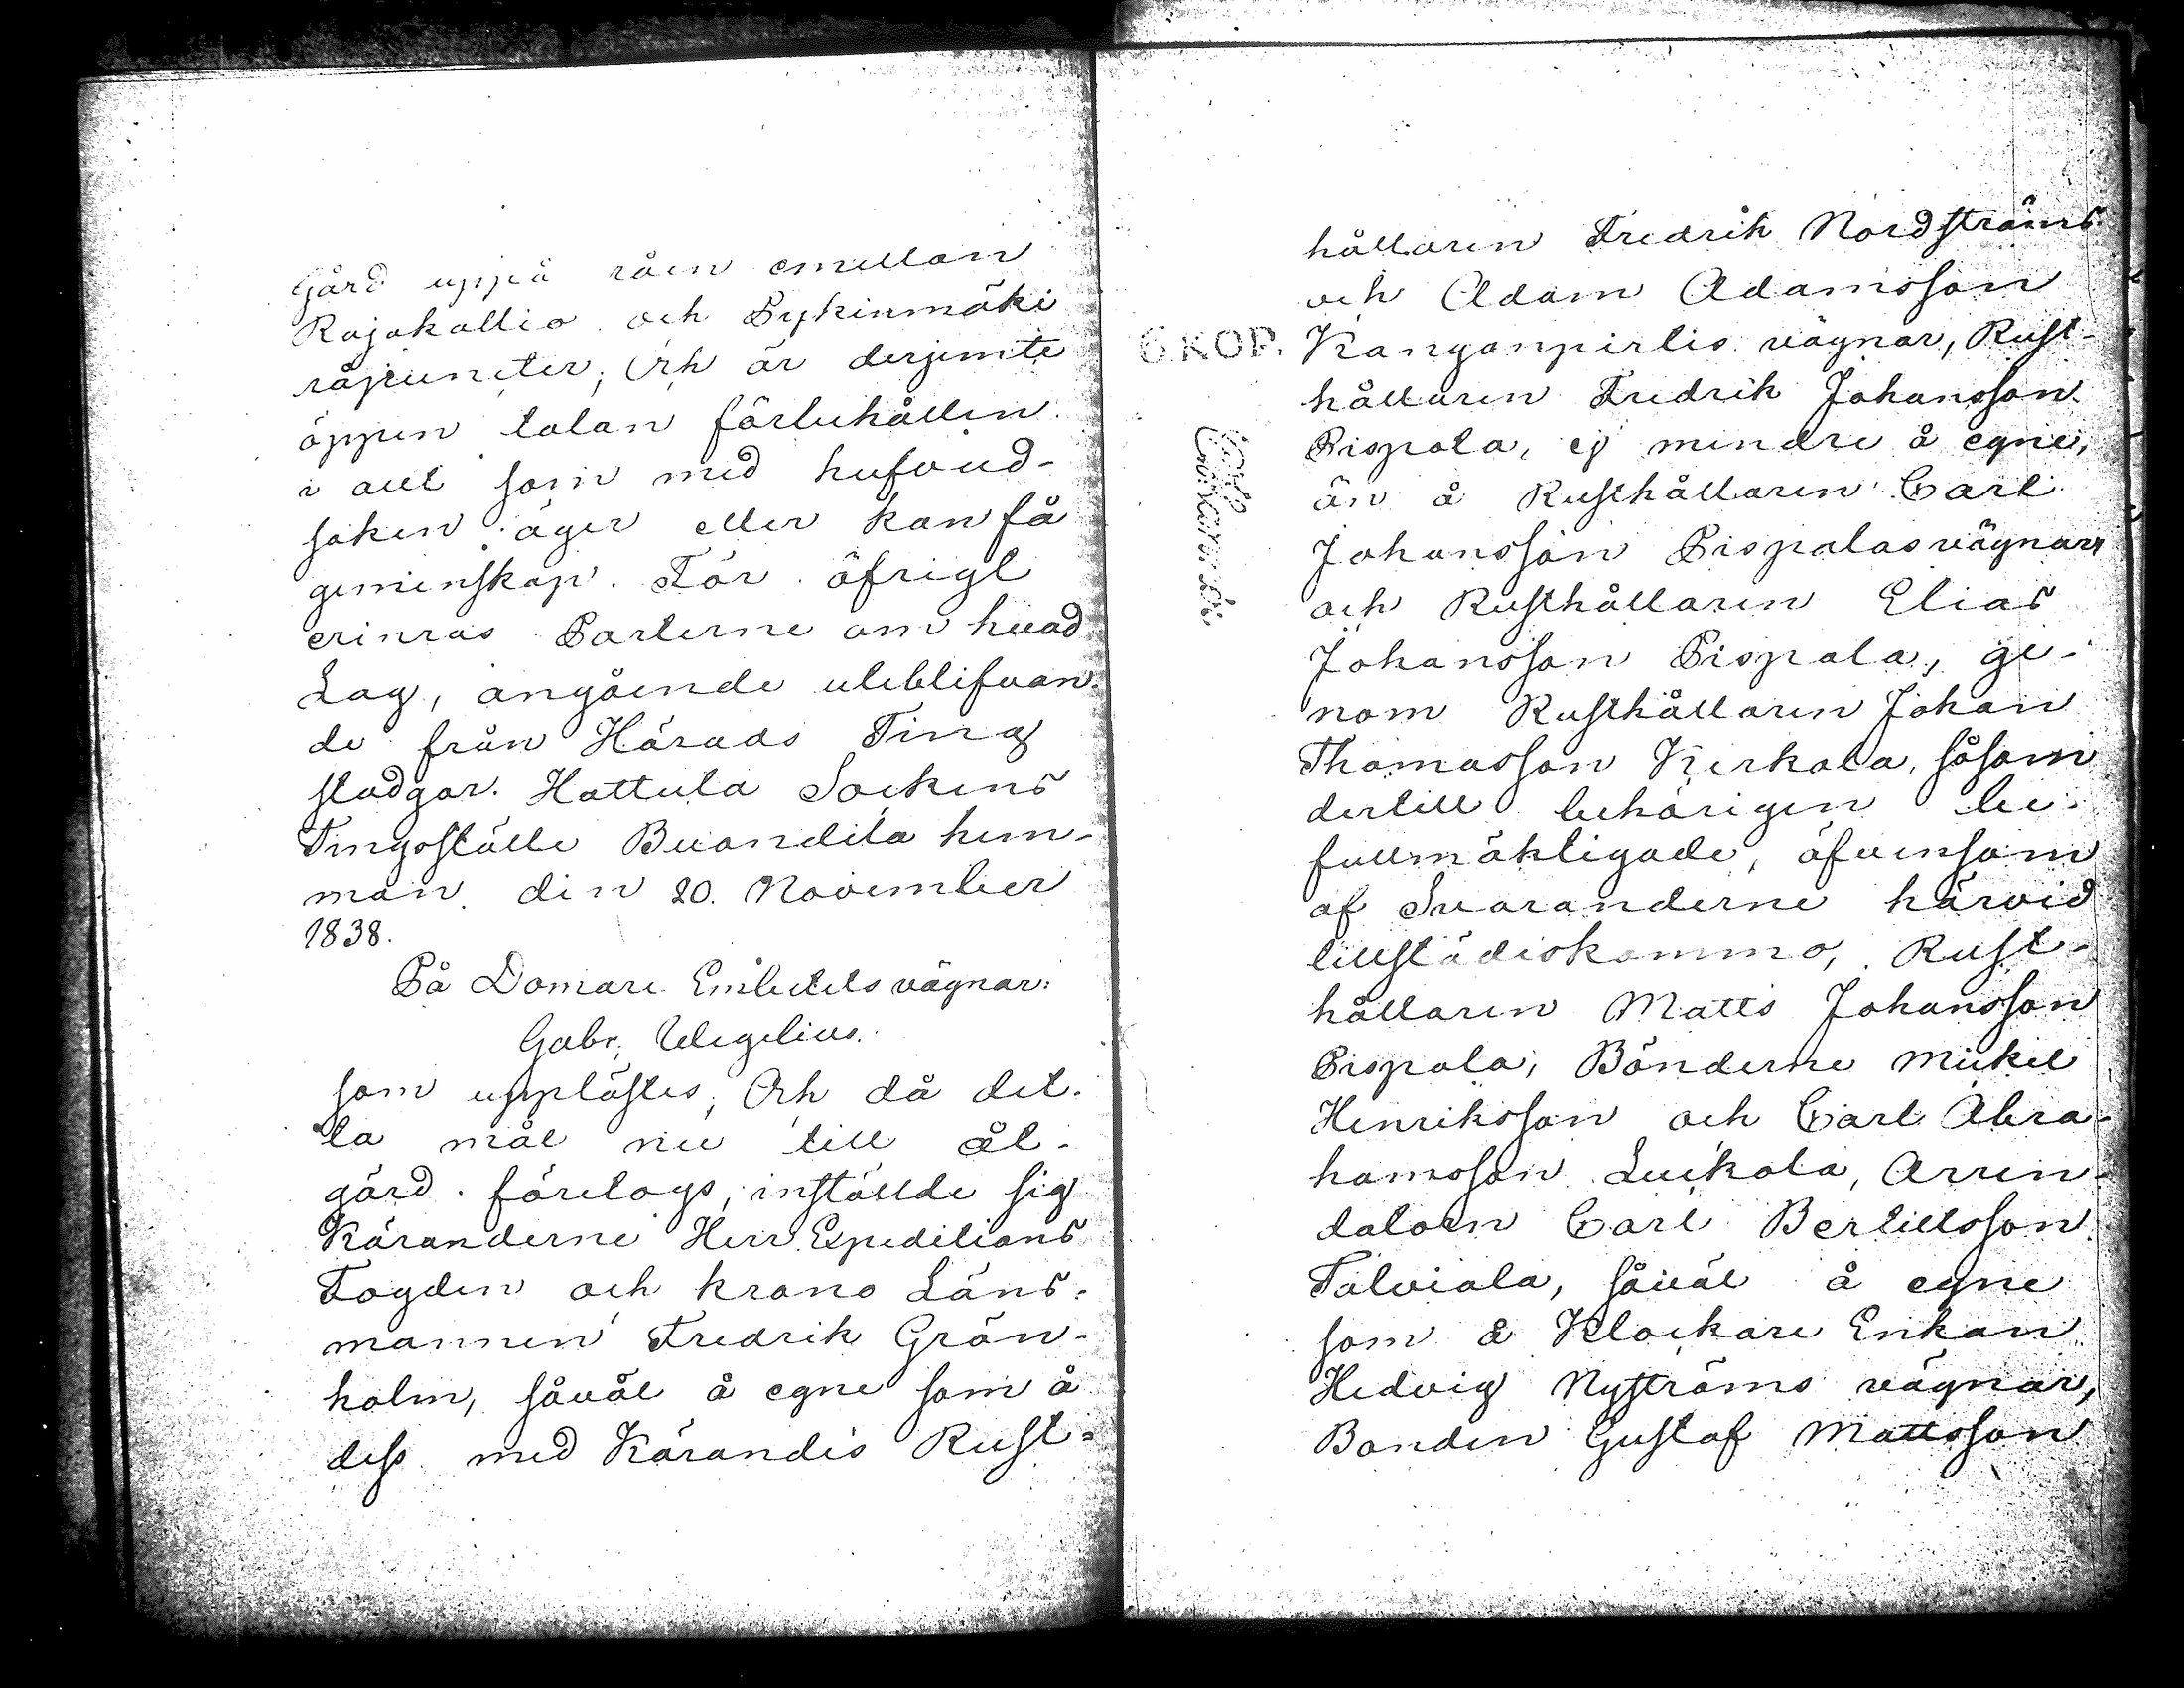 gård uppå råen emellan
Rajakallio och Pykinmäki
råpuncter; Och är derjemte
öppen talan förbehållen
i allt som med hufvud-
saken äger eller kan få
gemenskap. För öfrigt
erinras Parterne om hvad
Lag, angående uteblifvan-
de från Härads Ting
stadgar. Hattula Sockens
Tingsställe Buandila hem-
man den 20. November
1838.
På Domare Embetets vägnar:
Gabr. Wegelius.
som upplästes; Och då det-
ta mål nu till åt-
gärd företogs, inställde sig
Käranderne Herr Expeditions
Fogden och krono Läns-
mannen Fredrik Grön-
holm, såväl å egne som å
dess med Kärandes Rust-
hållaren Fredrik Nordströms
och Adam Adamsson
6 KOP. Kanganpirtis vägnar, Rust-
hållaren Fredrik Johansson
Pispala, ej mindre å egne,
än å Rusthållaren Carl
Johansson Pispalas vägnar
och Rusthållaren Elias
Johansson Pispala, ge-
nom Rusthållaren Johan
Thomasson Kerkola, såsom
dertill behörigen be-
fullmäktigade, äfvensom
af Svaranderne härvid
tillstädeskommo, Rust-
hållaren Matts Johansson
Pispala, Bönderne Mickel
Henriksson och Carl Abra-
hamsson Luikala, Arren-
datorn Carl Bertillsson
Talviala, såväl å egne
som å Klockare Enkan
Hedvig Nyströms vägnar,
Bonden Gustaf Mattsson